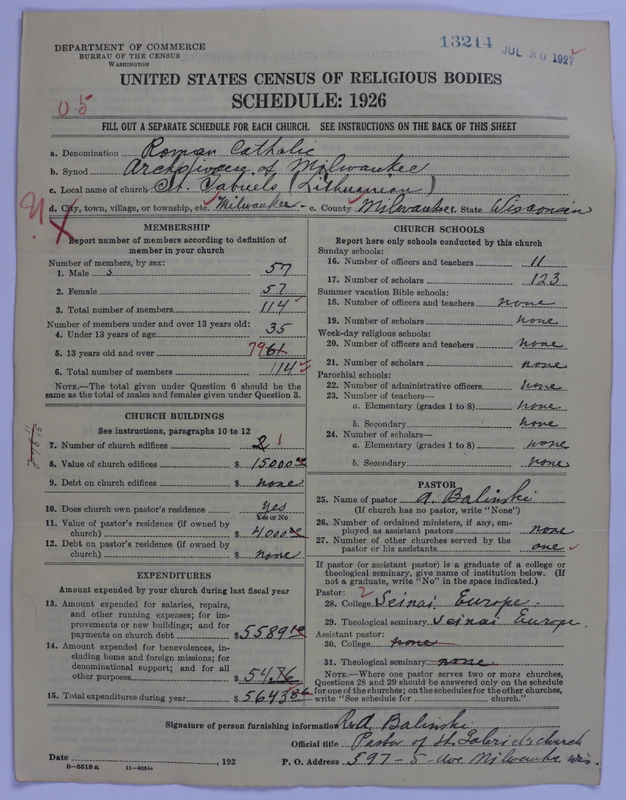 DEPARTMENT OF COMMERCE
BUREAU OF THE CENSUS
WASHINGTON
13214 JUL 20 1927
UNITED STATES CENSUS OF RELIGIOUS BODIES
SCHEDULE: 1926
05
FILL OUT A SEPARATE SCHEDULE FOR EACH CHURCH. SEE INSTRUCTIONS ON THE BACK OF THIS SHEET
a. Denomination Roman Catholic
b. Synod Archdiocecy of Milwaukee
c. Local name of church St. Gabriels (Lithuanian)
d. City, town, village, or township, etc. Milwaukee - e. County Milwaukee f. State Wisconsin
MEMBERSHIP
Report number of members according to definition of
member in your church
Number of members, by sex:
1. Male 57
2. Female 57
3. Total number of members 114
Number of members under and over 13 years old:
4. Under 13 years of age 35
5. 13 years old and over 79 61
6. Total number of members 114
NOTE.—The total given under Question 6 should be the
same as the total of males and females given under Question 3.
CHURCH BUILDINGS
See instructions, paragraphs 10 to 12
7. Number of church edifices 2 1
8. Value of church edifices $ 15000 00
9. Debt on church edifices $ none
10. Does church own pastor's residence yes
Yes or No
11. Value of pastor's residence (if owned by
church) $ 4000 00
12. Debt on pastor's residence (if owned by
church) $ none
EXPENDITURES
Amount expended by your church during last fiscal year
13. Amount expended for salaries, repairs,
and other running expenses; for im-
provements or new buildings; and for
payments on church debt $ 5589 10
14. Amount expended for benevolences, in-
cluding home and foreign missions; for
denominational support; and for all
other purposes $ 54.76
15. Total expenditures during year $ 5643 86
CHURCH SCHOOLS
Report here only schools conducted by this church
Sunday schools:
16. Number of officers and teachers 11
17. Number of scholars 123
Summer vacation Bible schools:
18. Number of officers and teachers none
19. Number of scholars none
Week-day religious schools:
20. Number of officers and teachers none
21. Number of scholars none
Parochial schools:
22. Number of administrative officers none
23. Number of teachers—
a. Elementary (grades 1 to 8) none
b. Secondary none
24. Number of scholars—
a. Elementary (grades 1 to 8) none
b. Secondary none
PASTOR
25. Name of pastor A. Balinski
(If church has no pastor, write "None")
26. Number of ordained ministers, if any, em-
ployed as assistant pastors none
27. Number of other churches served by the
pastor or his assistants one
If pastor (or assistant pastor) is a graduate of a college or
theological seminary, give name of institution below. (If
not a graduate, write "No" in the space indicated.)
Pastor: 2
28. College Seinai Europe.
29. Theological seminary Seinai Europe.
Assistant pastor:
30. College none
31. Theological seminary none
NOTE.—Where one pastor serves two or more churches,
Questions 28 and 29 should be answered only on the schedule
for one of the churches; on the schedules for the other churches,
write "See schedule for church."
Signature of person furnishing information R. A. Balinski
Official title Pastor of St. Gabriels church
Date , 192 P. O. Address 597 - 5 - Ave Milwaukee Wis.
8—5518a 11—9054c